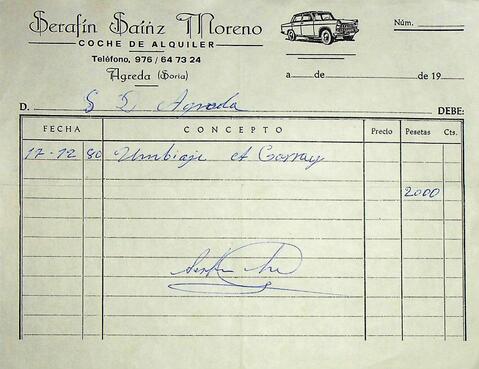 Serafín Saínz Moreno
COCHE DE ALQUILER
Teléfono, 976 / 64 73 24
Agreda (Soria)
Núm.
a de de 19
D. S D Agreda DEBE:
FECHA CONCEPTO Precio Pesetas Cts.
17-12 80 Umbiaje at Garray
2000